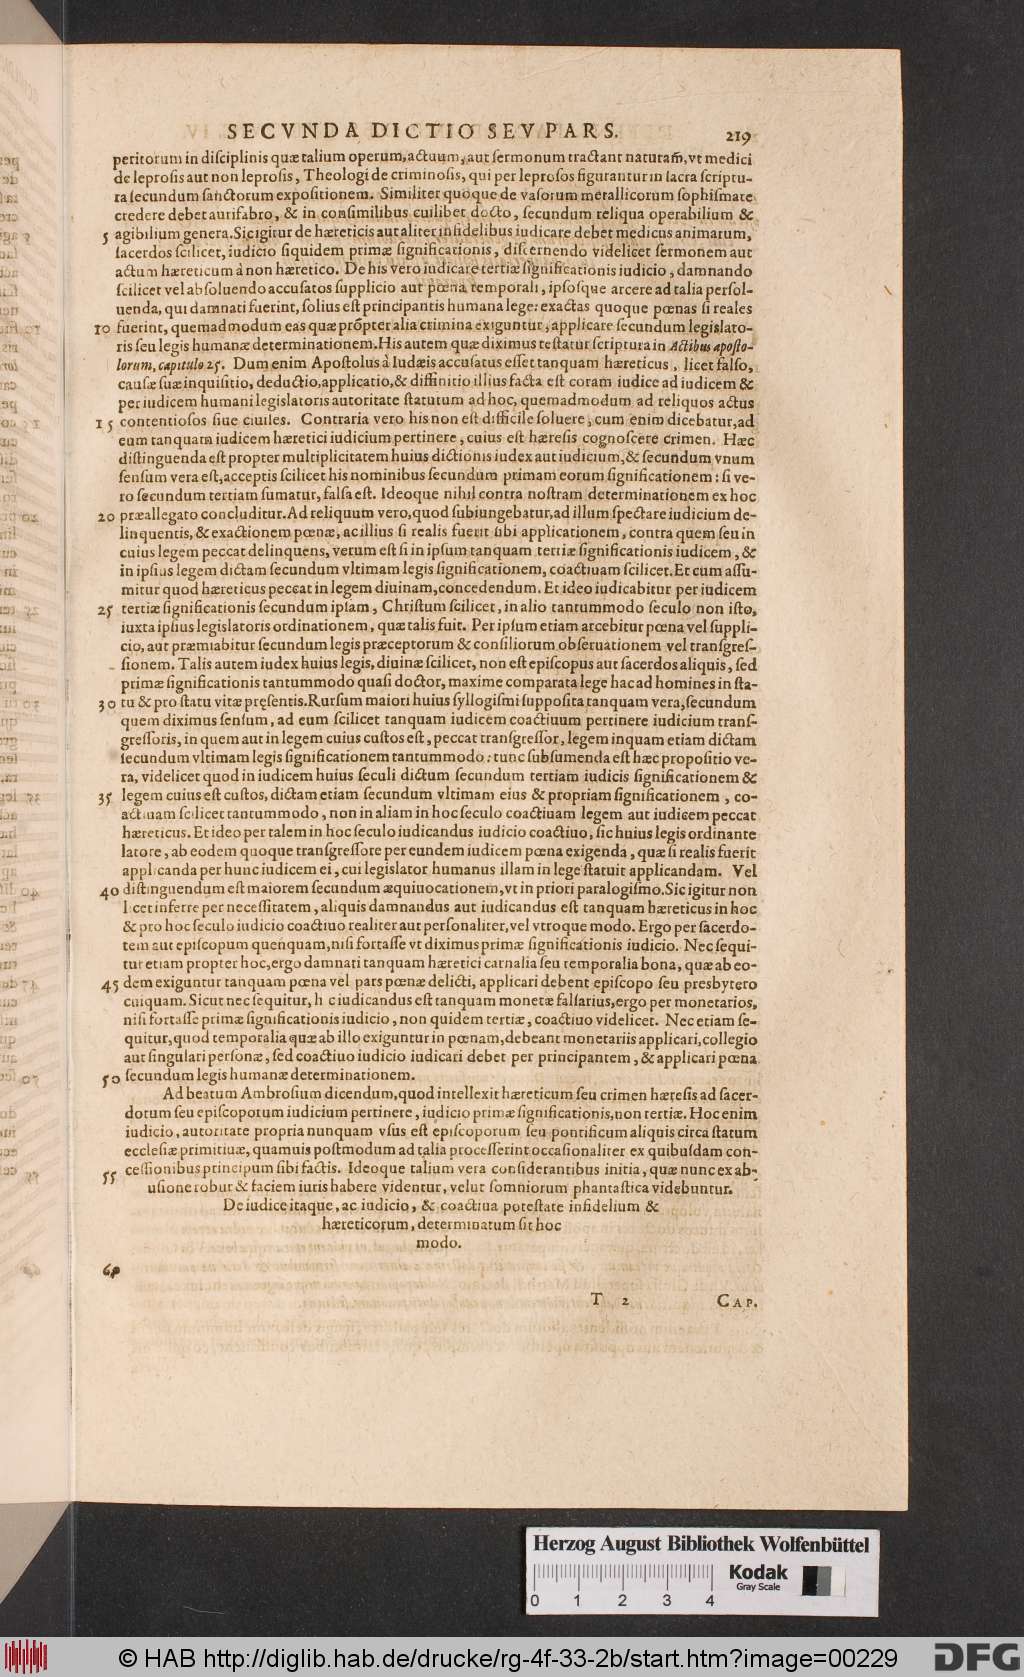 SECVNDA DICTIO SEV PARS. 219
peritorum in disciplinis quæ talium operum, actuum, aut sermonum tractant naturam̃, vt medici
de leprosis aut non leprosis, Theologi de criminosis, qui per leprosos figurantur in sacra scriptu-
ra secundum sanctorum expositionem. Similiter quoque de vasorum metallicorum sophismate
credere debet aurifabro, & in consimilibus cuilibet docto, secundum reliqua operabilium &
5 agibilium genera. Sic igitur de hæreticis aut aliter infidelibus iudicare debet medicus animarum,
sacerdos scilicet, iudicio siquidem primæ significationis, discernendo videlicet sermonem aut
actum hæreticum à non hæretico. De his vero iudicare tertiæ significationis iudicio, damnando
scilicet vel absoluendo accusatos supplicio aut pœna temporali, ipsosque arcere ad talia persol-
uenda, qui damnati fuerint, solius est principantis humana lege: exactas quoque pœnas si reales
10 fuerint, quemadmodum eas quæ propter alia crimina exiguntur, applicare secundum legislato-
ris seu legis humanæ determinationem. His autem quæ diximus testatur scriptura in Actibus aposto-
lorum, capitulo 25. Dum enim Apostolus à Iudæis accusatus esset tanquam hæreticus, licet falso,
causæ suæ inquisitio, deductio, applicatio, & diffinitio illius facta est coram iudice ad iudicem &
per iudicem humani legislatoris autoritate statutum ad hoc, quemadmodum ad reliquos actus
15 contentiosos siue ciuiles. Contraria vero his non est difficile soluere, cum enim dicebatur, ad
eum tanquam iudicem hæretici iudicium pertinere, cuius est hæresis cognoscere crimen. Hæc
distinguenda est propter multiplicitatem huius dictionis iudex aut iudicium, & secundum vnum
sensum vera est, acceptis scilicet his nominibus secundum primam eorum significationem: si ve-
ro secundum tertiam sumatur, falsa est. Ideoque nihil contra nostram determinationem ex hoc
20 præallegato concluditur. Ad reliquum vero, quod subiungebatur, ad illum spectare iudicium de-
linquentis, & exactionem pœnæ, ac illius si realis fuerit sibi applicationem, contra quem seu in
cuius legem peccat delinquens, verum est si in ipsum tanquam tertiæ significationis iudicem, &
in ipsius legem dictam secundum vltimam legis significationem, coactiuam scilicet. Et cum assu-
mitur quod hæreticus peccet in legem diuinam, concedendum. Et ideo iudicabitur per iudicem
25 tertiæ significationis secundum ipsam, Christum scilicet, in alio tantummodo seculo non isto,
iuxta ipsius legislatoris ordinationem, quæ talis fuit. Per ipsum etiam arcebitur pœna vel suppli-
cio, aut præmiabitur secundum legis præceptorum & consiliorum obseruationem vel transgres-
sionem. Talis autem iudex huius legis, diuinæ scilicet, non est episcopus aut sacerdos aliquis, sed
primæ significationis tantummodo quasi doctor, maxime comparata lege hac ad homines in sta-
30 tu & pro statu vitæ pręsentis. Rursum maiori huius syllogismi supposita tanquam vera, secundum
quem diximus sensum, ad eum scilicet tanquam iudicem coactiuum pertinere iudicium trans-
gressoris, in quem aut in legem cuius custos est, peccat transgressor, legem inquam etiam dictam
secundum vltimam legis significationem tantummodo: tunc subsumenda est hæc propositio ve-
ra, videlicet quod in iudicem huius seculi dictum secundum tertiam iudicis significationem &
35 legem cuius est custos, dictam etiam secundum vltimam eius & propriam significationem, co-
actiuam scilicet tantummodo, non in aliam in hoc seculo coactiuam legem aut iudicem peccat
hæreticus. Et ideo per talem in hoc seculo iudicandus iudicio coactiuo, sic huius legis ordinante
latore, ab eodem quoque transgressore per eundem iudicem pœna exigenda, quæ si realis fuerit
applicanda per hunc iudicem ei, cui legislator humanus illam in lege statuit applicandam. Vel
40 distinguendum est maiorem secundum æquiuocationem, vt in priori paralogismo. Sic igitur non
licet inferre per necessitatem, aliquis damnandus aut iudicandus est tanquam hæreticus in hoc
& pro hoc seculo iudicio coactiuo realiter aut personaliter, vel vtroque modo. Ergo per sacerdo-
tem aut episcopum quenquam, nisi fortasse vt diximus primæ significationis iudicio. Nec sequi-
tur etiam propter hoc, ergo damnati tanquam hæretici carnalia seu temporalia bona, quæ ab eo-
45 dem exiguntur tanquam pœna vel pars pœnæ delicti, applicari debent episcopo seu presbytero
cuiquam. Sicut nec sequitur, h c iudicandus est tanquam monetæ falsarius, ergo per monetarios,
nisi fortasse primæ significationis iudicio, non quidem tertiæ, coactiuo videlicet. Nec etiam se-
quitur, quod temporalia quæ ab illo exiguntur in pœnam, debeant monetariis applicari, collegio
aut singulari personæ, sed coactiuo iudicio iudicari debet per principantem, & applicari pœna
50 secundum legis humanæ determinationem.
Ad beatum Ambrosium dicendum, quod intellexit hæreticum seu crimen hæresis ad sacer-
dotum seu episcoporum iudicium pertinere, iudicio primæ significationis, non tertiæ. Hoc enim
iudicio, autoritate propria nunquam vsus est episcoporum seu pontificum aliquis circa statum
ecclesiæ primitiuæ, quamuis postmodum ad talia processerint occasionaliter ex quibusdam con-
55 cessionibus principum sibi factis. Ideoque talium vera considerantibus initia, quæ nunc ex ab-
usione robur & faciem iuris habere videntur, velut somniorum phantastica videbuntur.
De iudice itaque, ac iudicio, & coactiua potestate infidelium &
hæreticorum, determinatum sit hoc
modo.
60
T 2 CAP.
Herzog August Bibliothek Wolfenbüttel
Kodak
Gray Scale
0 1 2 3 4
© HAB http://diglib.hab.de/drucke/rg-4f-33-2b/start.htm?image=00229
DFG